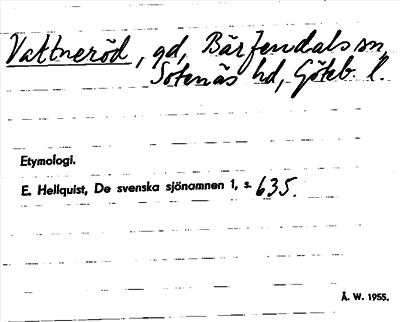 Vattneröd, gd, Bärfendals sn,
Sotenäs hd, Göteb. l.
Etymologi.
E. Hellquist, De svenska sjönamnen 1, s. 635.
Å. W. 1955.